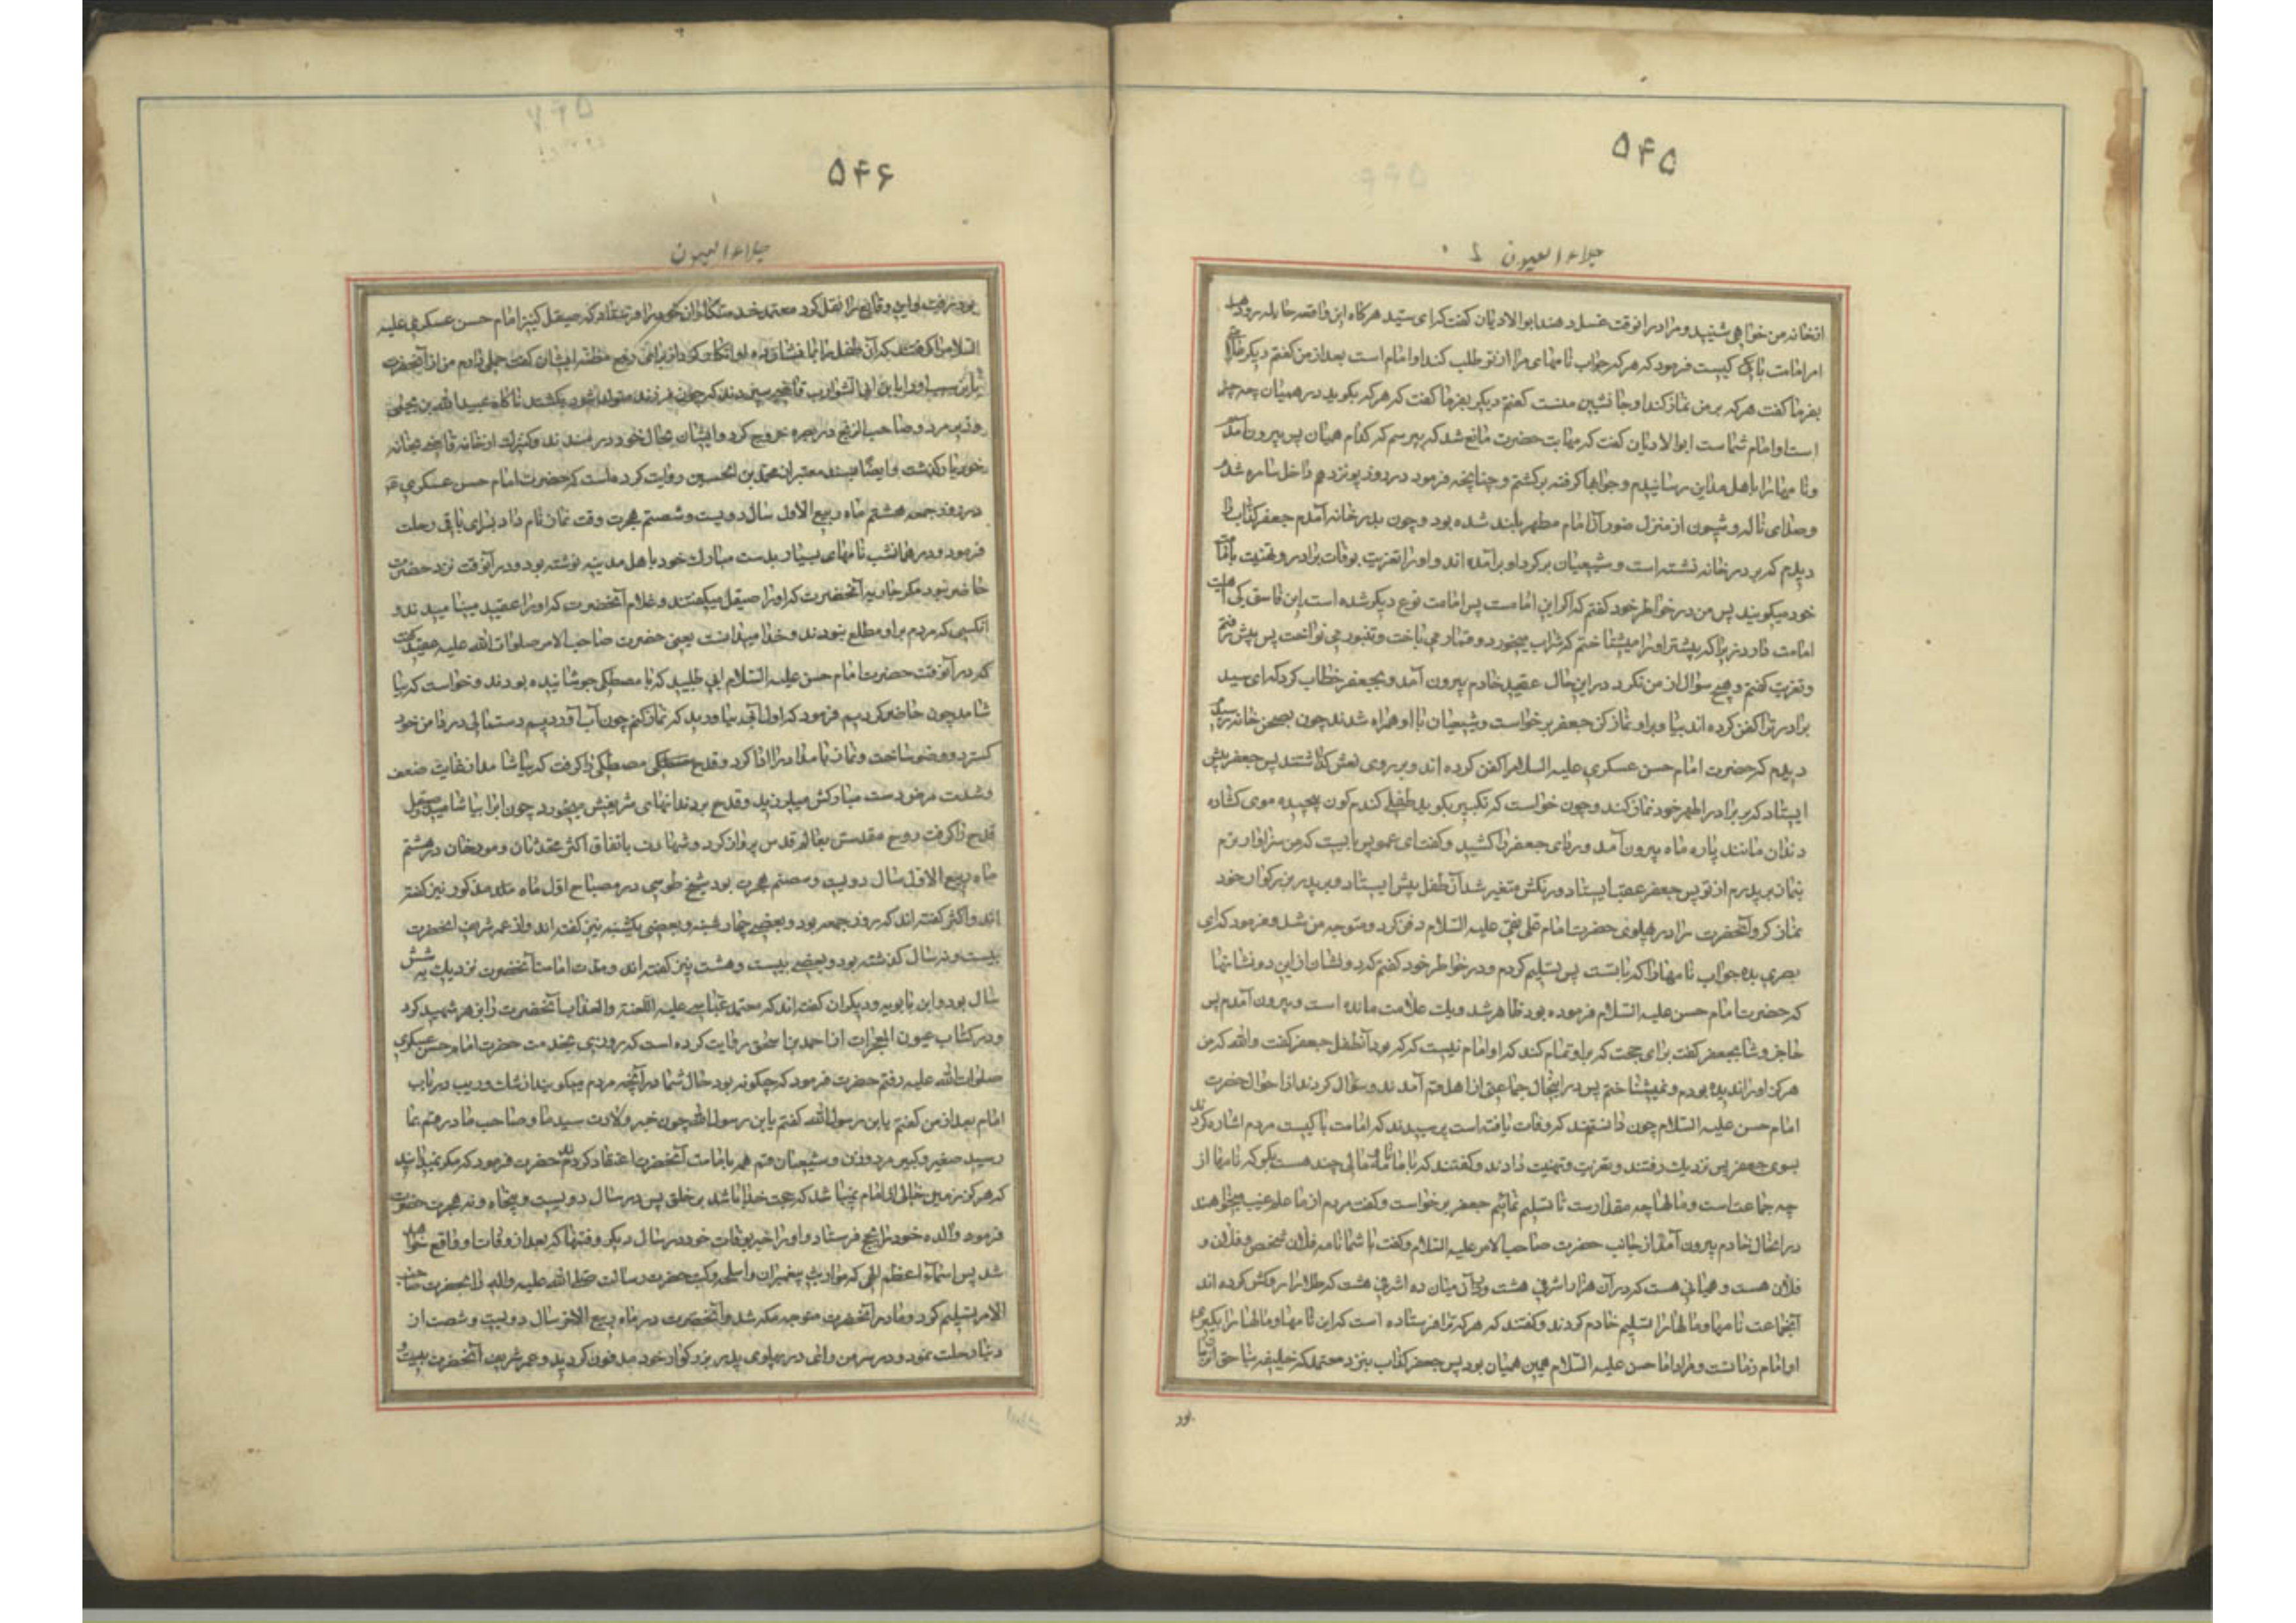 ۵۴۵
جلاء العیون
ازخانه من خواهی شنید و مرا در انوقت غسل دهند ابوالادیان کفت که ای سید هرکاه این واقعه هایله رو دهد
امر امامت با کیست فرمود که هرکه جواب نامهای مرا از تو طلب کند او امام است بعد از من کفتم دیکر
بفرما کفت هرکه بر من نماز کند او جانشین منست کفتم دیکر بفرما کفت که هرکه بکوید در همیان چه چیز
است او امام شماست ابوالادیان کفت که مهابت حضرت مانع شد که بپرسم که کدام همیان پس بیرون آمدم
و نامها را باهل مداین رسانیدم و جوابها کرفته برکشتم و چنانچه فرمود در روز پونزدهم داخل سامره شدم
و صدای ناله و شیون از منزل منور آن امام مطهر بلند شده بود و چون بدر خانه آمدم جعفر کذاب را
دیدم که بر در خانه نشسته است و شیعیان بر کرد او برآمده اند و او را تعزیت بوفات برادر و تهنیت بامامت
خود میکویند پس من در خواطر خود کفتم که اکر این امامست پس امامت نوع دیکر شده است این فاسق کی اهلیت
امامت دارد زیرا که پیشتر او را میشناختم که شراب میخورد و قمار می باخت و تنبور می نواخت پس پیش رفتم
و تعزیت کفتم و هیچ سؤال از من نکرد در این حال عقید خادم بیرون آمد و بجعفر خطاب کرد که ای سید
برادر ترا کفن کرده اند بیا و بر او نماز کن جعفر برخواست و شیعیان با او همراه شدند چون بصحن خانه رسیدیم
دیدم که حضرت امام حسن عسکری علیه السلام را کفن کرده اند و بر روی نعش کذاشتند پس جعفر پیش
ایستاد که بر برادر اطهر خود نماز کند و چون خواست که تکبیر بکوید طفلی کندم کون پیچیده موی کشاده
دندان مانند پاره ماه بیرون آمد و ردای جعفر را کشید و کفت ای عمو پس بایست که من سزاوار ترم
بنماز بر پدرم از تو پس جعفر عقب ایستاد و رنکش متغیر شد آن طفل پیش ایستاد و بر پدر بزرکوار خود
نماز کرد و آنحضرت را در پهلوی حضرت امام علی نقی علیه السلام دفن کرد و متوجه من شد و فرمود که ای
بصری بده جواب نامها را که با تست پس تسلیم کردم و در خواطر خود کفتم که دو نشان از این دو نشانها
که حضرت امام حسن علیه السلام فرموده بود ظاهر شد و یک علامت مانده است و بیرون آمدم پس
حاجز وشا بجعفر کفت برای حجت که بر او تمام کند که او امام نیست که که بود آنطفل جعفر کفت والله که من
هرکز او را ندیده بودم و نمیشناختم پس در اینحال جماعتی از اهل قم آمدند و سؤال کردند از احوال حضرت
امام حسن علیه السلام چون دانستند که وفات یافته است پرسیدند که امامت با کیست مردم اشاره کردند
بسوی جعفر پس نزدیک رفتند و تعزیت و تهنیت دادند و کفتند که با ما نامه و مالی چند هست بکو که نامها از
چه جماعت است و مالها چه مقدارست تا تسلیم نمائیم جعفر برخواست و کفت مردم از ما علم غیب میخواهند
در انحال خادم بیرون آمد از جانب حضرت صاحب الامر علیه السلام و کفت با شما نامه فلان شخص و فلان و
فلان هست و همیانی هست که در آن هزار اشرفی هست و در آن میان ده اشرفی هست که طلا را روکش کرده اند
آنجماعت نامها و مالها را تسلیم خادم کردند و کفتند که هرکه ترا فرستاده است که این نامها و مالها را بکیری
او امام زمانست و مراد امام حسن علیه السلام همین همیان بود پس جعفر کذاب بنزد معتمد که خلیفه بناحق
بود
۵۴۶
جلاء العیون
بود رفت و این وقایع را نقل کرد معتمد خدمتکاران خود را فرستاد که صیقل کنیز امام حسن عسکری علیه
السلام را کرفتند که آن طفل را بما نشان ده او انکار کرد از برای رفع مظنه ایشان کفت حملی دارم من از آنحضرت
باین سبب او را بابن ابی الشوارب قاضی سپردند که چون فرزند متولد شود بکشند ناکاه عبیدالله بن یحیی
وزیر مرد و صاحب الزنج در بصره خروج کرد و ایشان بحال خود درماندند و کنیزک از خانه قاضی بخانه
خود بازکذشت و ایضا بسند معتبر از محمد بن الحسین روایت کرده است که حضرت امام حسن عسکری
در روز جمعه هشتم ماه ربیع الاول سال دویست و شصتم هجرت وقت نماز بامداد بسرای باقی رحلت
فرمود و در همانشب نامهای بسیار بدست مبارک خود باهل مدینه نوشته بود و در آنوقت نزد حضرت
حاضر نبود مکر جاریه آنحضرت که او را صیقل میکفتند و غلام آنحضرت که او را عقید مینامیدند و
آنکسی که مردم بر او مطلع نبودند و خدا میدانست یعنی حضرت صاحب الامر صلوات الله علیه عقید کفت
که در آنوقت حضرت امام حسن علیه السلام آبی طلبید که با مصطکی جوشانیده بودند و خواست که بیا
شامد چون حاضر کردیم فرمود که اول آب بیاورید که نماز کنم چون آب آوردیم دستمالی در دامن خود
کسترد و وضو ساخت و نماز بامداد را ادا کرد و قدح مصطکی را کرفت که بیاشامد از غایت ضعف
و شدت مرض دست مبارکش میلرزید و قدح بر دندانهای شریفش میخورد چون آب را بیاشامید و صیقل
قدح را کرفت روح مقدسش بعالم قدس پرواز کرد و شهادت باتفاق اکثر محدثان و مورخان در هشتم
ماه ربیع الاول سال دویست و شصتم هجرت بود شیخ طوسی در مصباح اول ماه مذکور نیز کفته
اند و اکثر کفته اند که روز جمعه بود و بعضی چهارشنبه و بعضی یکشنبه نیز کفته اند و از عمر شریف آنحضرت
بیست و نه سال کذشته بود و بعضی بیست و هشت نیز کفته اند و مدت امامت آنحضرت نزدیک به شش
سال بود و ابن بابویه و دیکران کفته اند که معتمد عباسی علیه اللعنة والعذاب آنحضرت را بزهر شهید کرد
و در کتاب عیون المعجزات از احمد بن اسحق روایت کرده است که روزی بخدمت حضرت امام حسن عسکری
صلوات الله علیه رفتم حضرت فرمود که چکونه بود حال شما در آنچه مردم میکویند از شک و ریب در باب
امام بعد از من کفتم یابن رسول الله کفتم یابن رسول الله چون خبر ولادت سید ما و صاحب ما در قم بما
رسید صغیر و کبیر مرد و زن و شیعیان قم همه بامامت آنحضرت اعتقاد کردند حضرت فرمود که مکر نمیدانید
که هرکز زمین خالی از امام نمیباشد که حجت خدا باشد بر خلق پس در سال دویست و پنجاه و نه هجرت حضرت
فرمود والده خود را بحج فرستاد و او را خبر بوفات خود در سال دیکر و فتنها که بعد از وفات او واقع خواهد
شد پس اسماء اعظم الهی که مواریث پیغمبران و اسلحه و کتب حضرت رسالت صلی الله علیه واله را بحضرت صاحب
الامر تسلیم کرد و مادر آنحضرت متوجه مکه شد و آنحضرت در ماه ربیع الاخر سال دویست و شصت از
دنیا رحلت نمود و در سر من رای در پهلوی پدر بزرکوار خود مدفون کردید و عمر شریف آنحضرت